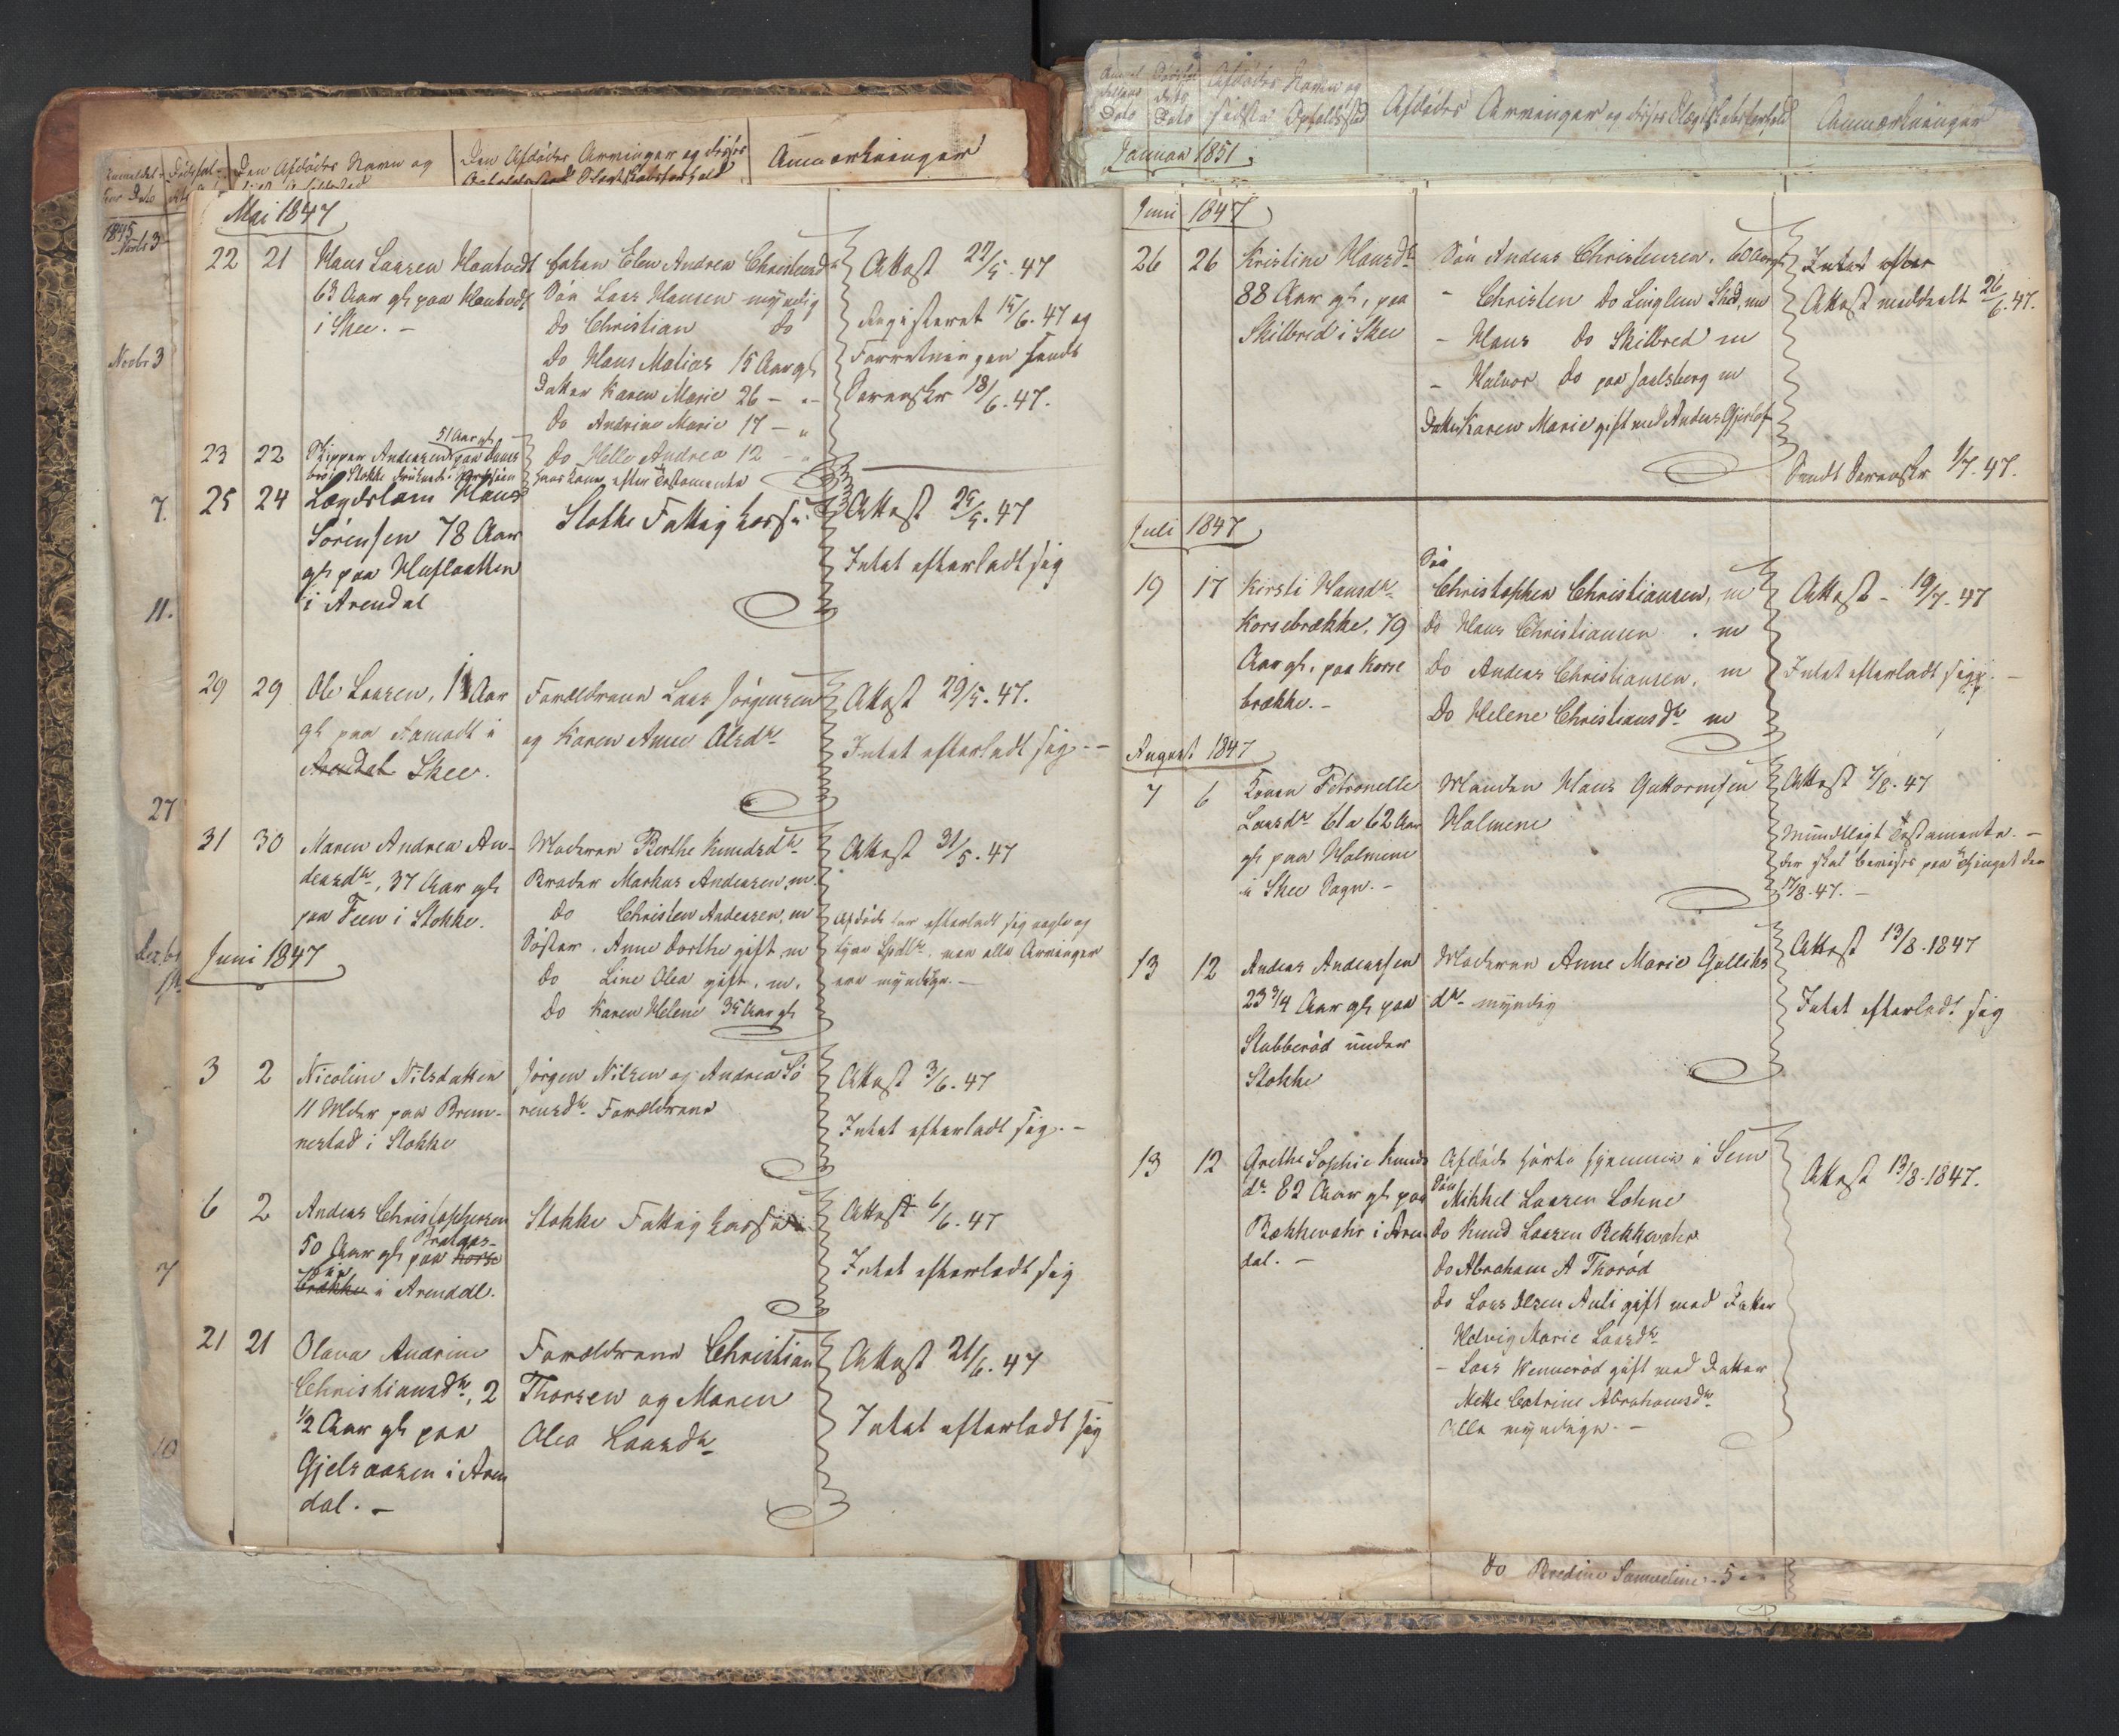 Den Afdødes Navn og
Den Afdødes Arvinger og disses
Anmærkninger
1845
Novbr 3
Novbr 3
7.
11.
27
7
10
Mai 1847
22 21 Hans Larsen Hontvedt
63 Aar gl. paa Hontvedt
i Skee. -
Enken Elen Andrea Christensd.
Søn Lars Hansen myndig
do Christian do
do Hans Matias 15 Aar gl.
Datter Karen Marie 26 -
do Andrine Marie 17 - "
do Helle Andrea 12 - "
Attest 22/5. 47
Registeret 15/6. 47 og
Forretningen sendt
Sorenskr 18/6. 47.
23 22 Skipper Andersen
51 Aar gl.
Stokke
efter Testamente
25 24 Lægdslem Hans
Sørensen 78 Aar
gl. paa Huflaatten
i Arendal
Stokke Fattigkasse.
Attest 25/5. 47
Intet efterladt sig
29 29 Ole Larsen, Aar
gl. paa Aamodt i
Arendal Skee.
Forældrene Lars Jørgensen
og Karen Anne Olsdr
Attest 29/5. 47.
Intet efterladt sig. -
31 30 Maren Andrea An-
dersdr, 37 Aar gl.
paa Feen i Stokke.
Moderen Berthe Knudsdr
Broder Markus Andersen, m.
do Christen Andersen, m
Søster. Anne Dorthe gift. m
do Line Olea gift. m.
do Karen Helene 35 Aar gl.
Attest 31/5. 47
Afdøde har efterladt sig nogle og
tyve Spdlr, men alle Arvinger
ere myndige. -
Juni 1847
3 2 Nicoline Nilsdatter
11 Uger paa Brun-
nestad i Stokke
Jørgen Nilsen og Andrea Sø
rensdr. Forældrene
Attest 3/6. 47
Intet efterladt sig. -
6 2 Anders Christophersen
50 Aar gl. paa Korse
brække i Arendal.
Stokke Fattigkasse
Attest 6/6. 47
Intet efterladt sig
21 21 Olava Andrine
Christiansdr, 2
1/2 Aar gl. paa
Gjelsaasen i Aren
dal. -
Forældrene Christian
Thorsen og Maren
Olea Larsdr
Attest 21/6. 47
Intet efterladt sig
Afdødes Navn og
sidste Opholdssted
Afdødes Arvinger og disses Slægtskabsforhold
Anmærkninger
Januar 1851.
Juni 1847
26 26 Kristine Hansdr
88 Aar gl., paa
Skilbred i Skee
Søn Anders Christensen. 60 Aar gl.
- Christen do
- Hans do Skilbred m
- Halvor do paa Jarlsberg m
Datter Karen Marie gift med Anders
Intet efter
Attest meddeelt 26/6. 47.
Sendt Sorenskr 1/7. 47.
Juli 1847
19 17 Kirsti Hansdr
Korsebrække, 79
Aar gl. paa Korse
brække. -
Søn
Christopher Christiansen, m
do Hans Christiansen. m
do Anders Christiansen, m
do Helene Christiansdr m
Attest - 19/7. 47
Intet efterladt sig. -
August 1847
7 6 Konen Petronelle
Larsdr 61 a 62 Aar
gl. paa Holmene
i Skee Sogn. -
Manden Hans Guttormsen
Holmene
Attest 7/8. 47
Mundtligt Testamente. -
der skal bevises paa Thinget den
17/8. 47. -
13 12 Anders Anderssen
23 3/4 Aar gl. paa
Stubberød under
Stokke
Moderen Anne Marie Gulliks
dr. myndig
Attest 13/8. 1847
Intet efterladt sig
13 12 Grethe Sophie Knuds
dr. 82 Aar gl. paa
Bækkevahr i Aren
dal. -
Afdøde hørte hjemme i Sem
Søn
Mikkel Larsen Lohne
do Knud Larsen Bekkevahr
do Abraham A Thorød
do Lars Olsen Auli gift med Datter
Helvig Marie Larsdr
- Lars Wennerød gift med Datter
Mette Catrine Abrahamsdr
Alle myndige. -
Attest 13/8. 1847.
do Bredine Samueline. 5 -